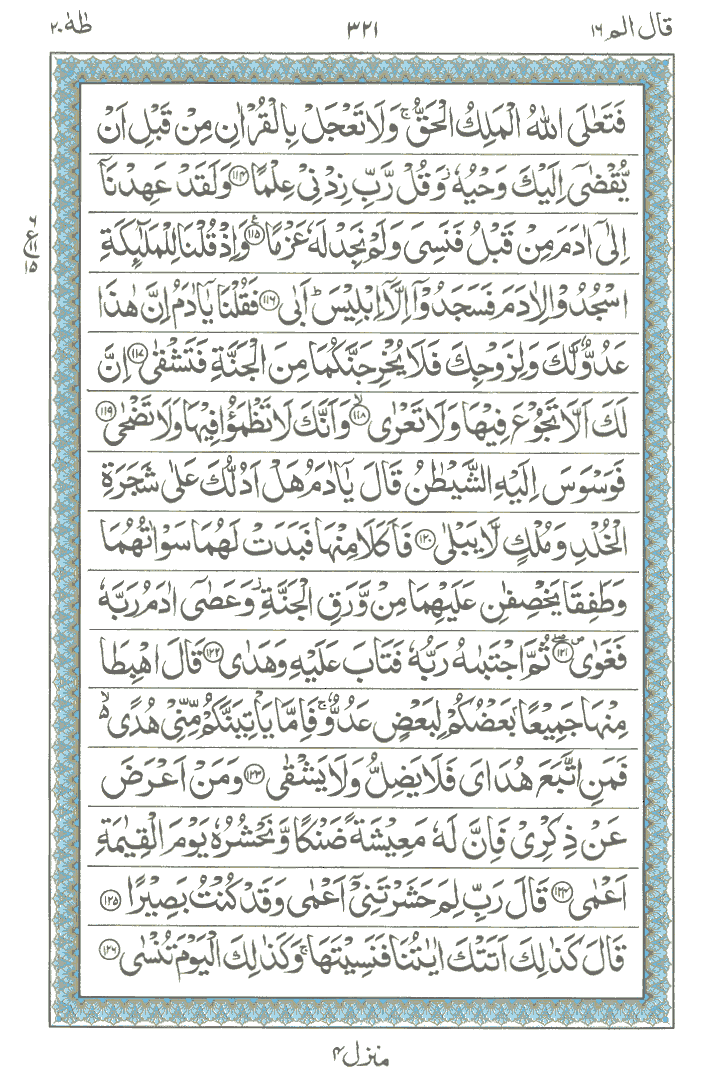 قال الم ١٦ ٣٢١ طٰهٰ ٢٠
فَتَعٰلَى اللّٰهُ الْمَلِكُ الْحَقُّ ۚ وَلَا تَعْجَلْ بِالْقُرْاٰنِ مِنْ قَبْلِ اَنْ
يُّقْضٰۤى اِلَيْكَ وَحْيُهٗ ؗ وَقُلْ رَّبِّ زِدْنِيْ عِلْمًا ﴿١١٤﴾ وَلَقَدْ عَهِدْنَاۤ
اِلٰۤى اٰدَمَ مِنْ قَبْلُ فَنَسِيَ وَلَمْ نَجِدْ لَهٗ عَزْمًا ﴿١١٥﴾ ع وَاِذْ قُلْنَا لِلْمَلٰٓئِكَةِ
٦
ع ١١
١٥
اسْجُدُوْا لِاٰدَمَ فَسَجَدُوْۤا اِلَّاۤ اِبْلِيْسَ ؕ اَبٰى ﴿١١٦﴾ فَقُلْنَا يٰۤاٰدَمُ اِنَّ هٰذَا
عَدُوٌّ لَّكَ وَلِزَوْجِكَ فَلَا يُخْرِجَنَّكُمَا مِنَ الْجَنَّةِ فَتَشْقٰى ﴿١١٧﴾ اِنَّ
لَكَ اَلَّا تَجُوْعَ فِيْهَا وَلَا تَعْرٰى ﴿١١٨﴾ ۙ وَاَنَّكَ لَا تَظْمَؤُا فِيْهَا وَلَا تَضْحٰى ﴿١١٩﴾
فَوَسْوَسَ اِلَيْهِ الشَّيْطٰنُ قَالَ يٰۤاٰدَمُ هَلْ اَدُلُّكَ عَلٰى شَجَرَةِ
الْخُلْدِ وَمُلْكٍ لَّا يَبْلٰى ﴿١٢٠﴾ فَاَكَلَا مِنْهَا فَبَدَتْ لَهُمَا سَوْاٰتُهُمَا
وَطَفِقَا يَخْصِفٰنِ عَلَيْهِمَا مِنْ وَّرَقِ الْجَنَّةِ ؗ وَعَصٰۤى اٰدَمُ رَبَّهٗ
فَغَوٰى ﴿١٢١﴾ ثُمَّ اجْتَبٰىهُ رَبُّهٗ فَتَابَ عَلَيْهِ وَهَدٰى ﴿١٢٢﴾ قَالَ اهْبِطَا
مِنْهَا جَمِيْعًۢا بَعْضُكُمْ لِبَعْضٍ عَدُوٌّ ۚ فَاِمَّا يَاْتِيَنَّكُمْ مِّنِّيْ هُدًى ۙ۬
فَمَنِ اتَّبَعَ هُدَايَ فَلَا يَضِلُّ وَلَا يَشْقٰى ﴿١٢٣﴾ وَمَنْ اَعْرَضَ
عَنْ ذِكْرِيْ فَاِنَّ لَهٗ مَعِيْشَةً ضَنْكًا وَّنَحْشُرُهٗ يَوْمَ الْقِيٰمَةِ
اَعْمٰى ﴿١٢٤﴾ قَالَ رَبِّ لِمَ حَشَرْتَنِيْۤ اَعْمٰى وَقَدْ كُنْتُ بَصِيْرًا ﴿١٢٥﴾
قَالَ كَذٰلِكَ اَتَتْكَ اٰيٰتُنَا فَنَسِيْتَهَا ۚ وَكَذٰلِكَ الْيَوْمَ تُنْسٰى ﴿١٢٦﴾
منزل ٤